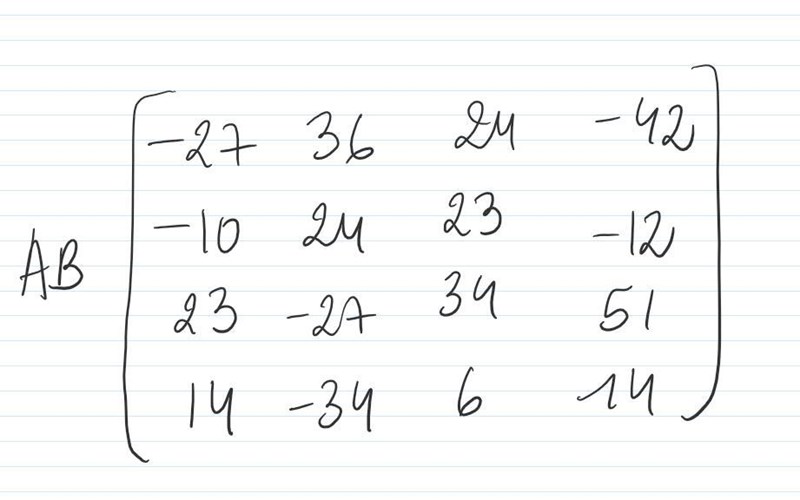 -27 36 24 -42
-10 24 23 -12
AB
23 -27 34 51
14 -34 6 14